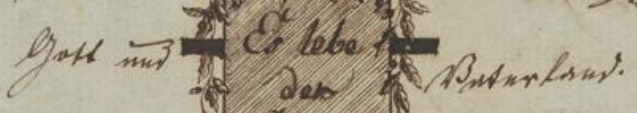 Gott und
Es lebe
der
Vaterland.